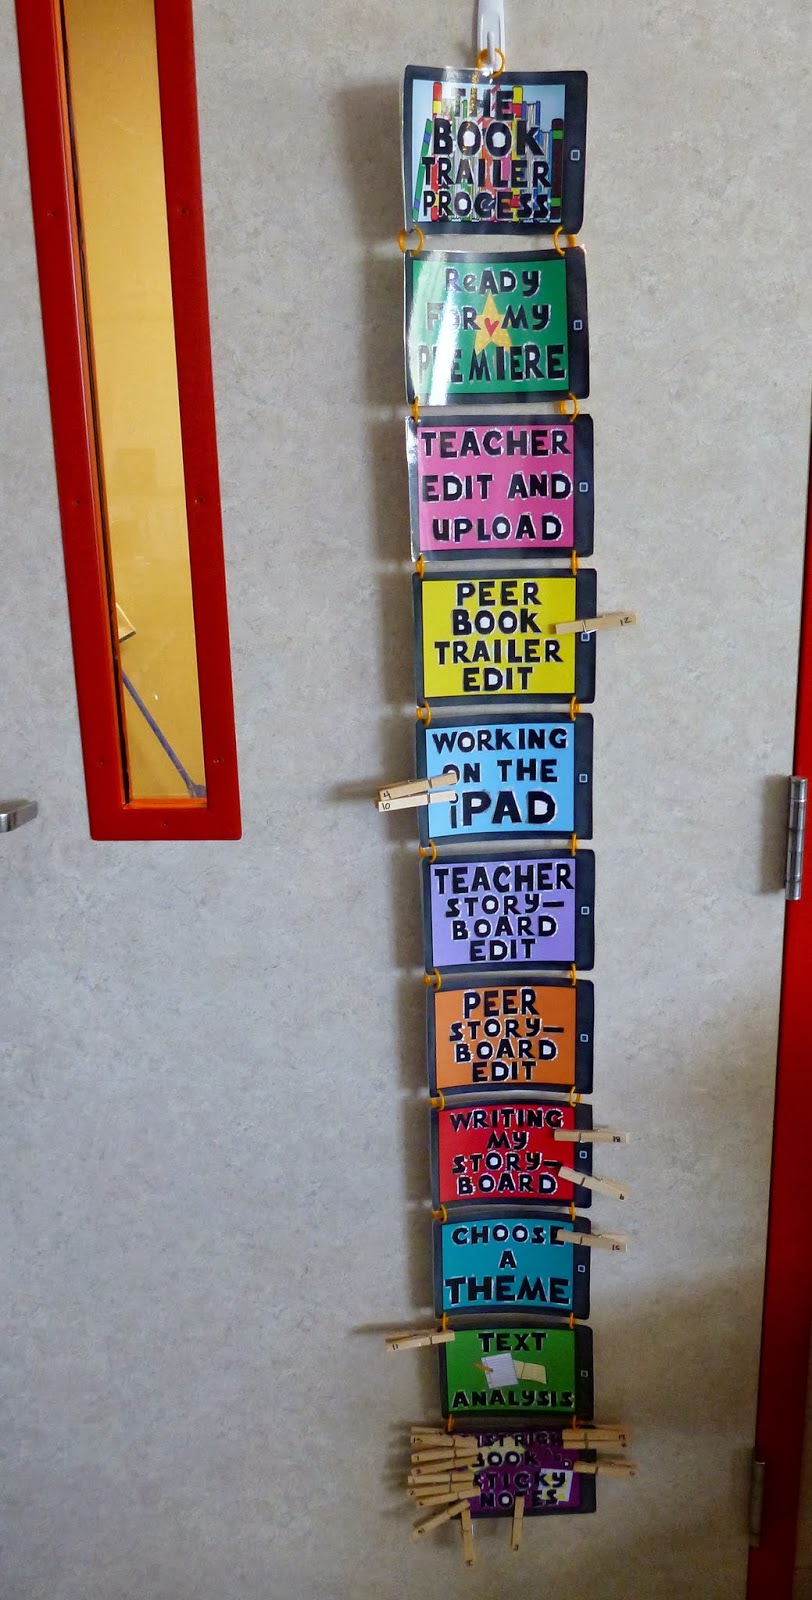 THE
BOOK
TRAILER
PROCESS
ReADY
FOR MY
PREMIERE
TEACHER
EDIT AND
UPLOAD
PEER
BOOK
TRAILER
EDIT
12
WORKING
ON THE
iPAD
4
10
TEACHER
STORY-
BOARD
EDIT
PEER
STORY-
BOARD
EDIT
WRITING
MY
STORY-
BOARD
18
CHOOSE
A
THEME
15
TEXT
11
ANALYSIS
BOOK
STICKY
NOTES